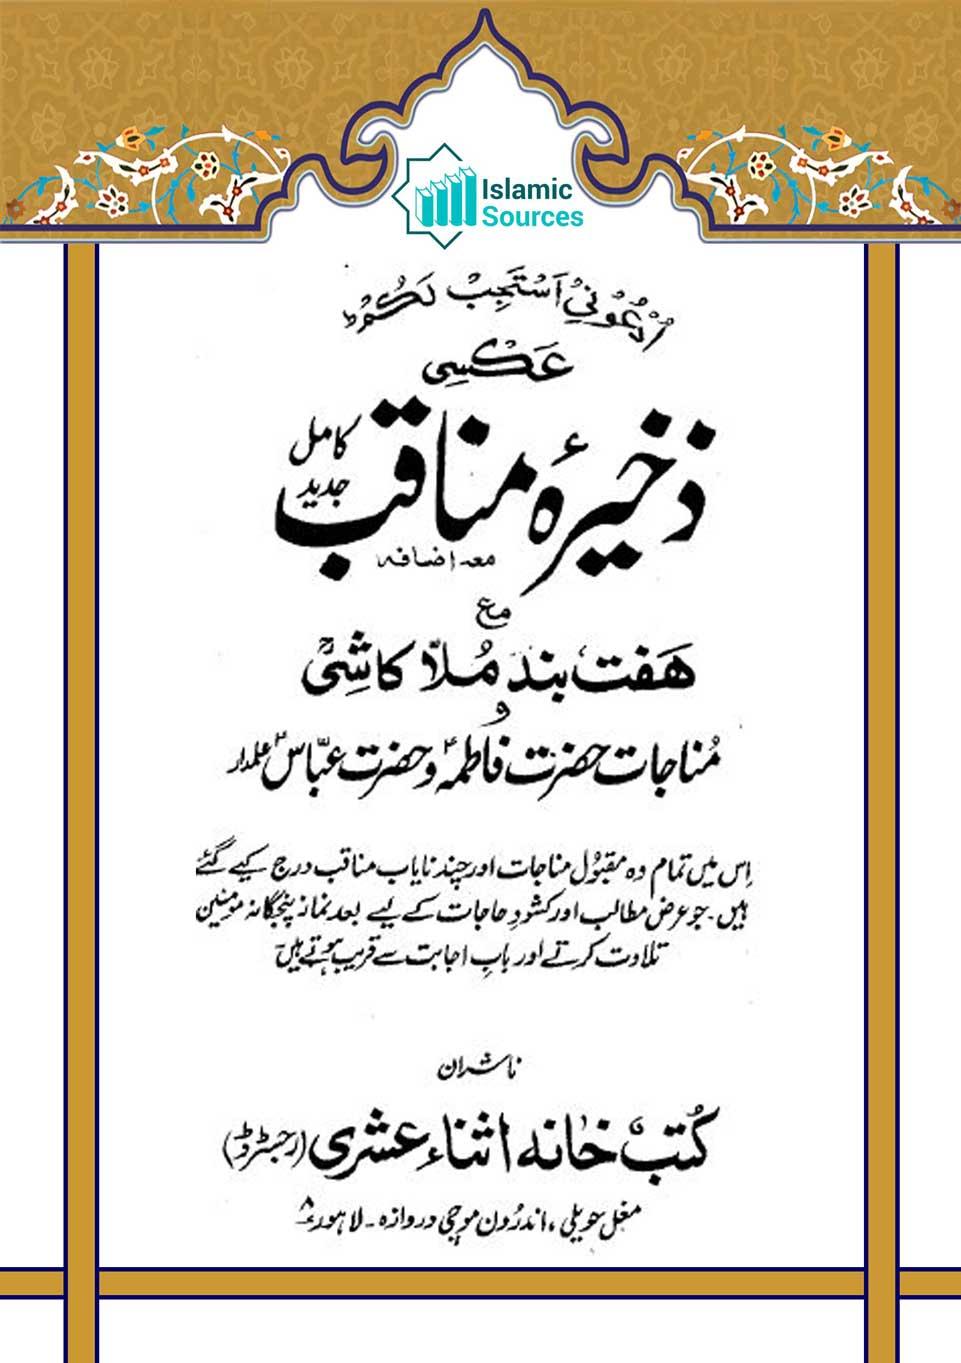 Islamic
Sources
اُدْعُوْنِیْ اَسْتَجِبْ لَکُمْ ط
عَکْسِی
ذخیرۂ مناقب کامل جدید
معہ اضافہ
مع
ھفت بند مُلّا کاشیؒ
و
مُناجات حضرت فاطمہؑ و حضرت عبّاسؑ علمدار
اِس میں تمام وہ مقبُول مناجات اور چند نایاب مناقب درج کیے گئے
ہیں۔ جو عرض مطالب اور کشودِ حاجات کے لیے بعد نماز پنجگانہ مومنین
تلاوت کرتے اور بابِ اجابت سے قریب ہوتے ہیں
ناشران
کُتب خانہ اثناء عشری (رجسٹرڈ)
مغل حویلی، اندرُون موچی دروازہ۔ لاہور ۸